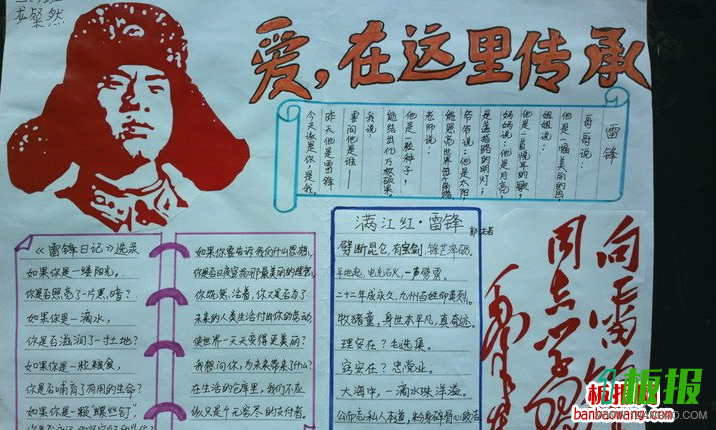 龙粲然
爱，在这里传承
雷锋
哥哥说：
他是一幅美丽的画
姐姐说：
他是一首悦耳的歌，
妈妈说：他是月亮，
是蓝精踏的明灯；
爷爷说：他是太阳
能照亮世界每个角落
老师说：
他是一粒种子，
能结出亿万颗硕果。
我说：
要问他是谁——
昨天他是雷锋
今天该是你，是我。
《雷锋日记》选录
如果你是一缕阳光，
你是否照亮了一片黑暗？
如果你是一滴水，
你是否滋润了一寸土地？
如果你是一粒粮食，
你是否哺育了有用的生命？
如果你是一颗螺丝钉，
如果你要告诉我们什么思想，
你是否日夜宣扬那最美丽的理想，
你既然活着，你又是否为了
未来的人类生活付出你的劳动，
使世界一天天变得更美丽？
我想问你，为未来带来了什么？
在生活的仓库里，我们不应
该只是个无穷尽的支付者。
满江红·雷锋
郭沫若
劈断昆仑，有宝剑，锋芒淬砺。
平地起，电光石火，一声劈雳。
二十二年成永久，九州百姓仰英烈
牧猪童，身世本平凡，真奇迹。
理安在？毛选集。
穷安在？忠党业。
大海中，滴水珠洋溢。
向雷锋
同志学习
毛泽东
板报网
板报
banbaowang.com